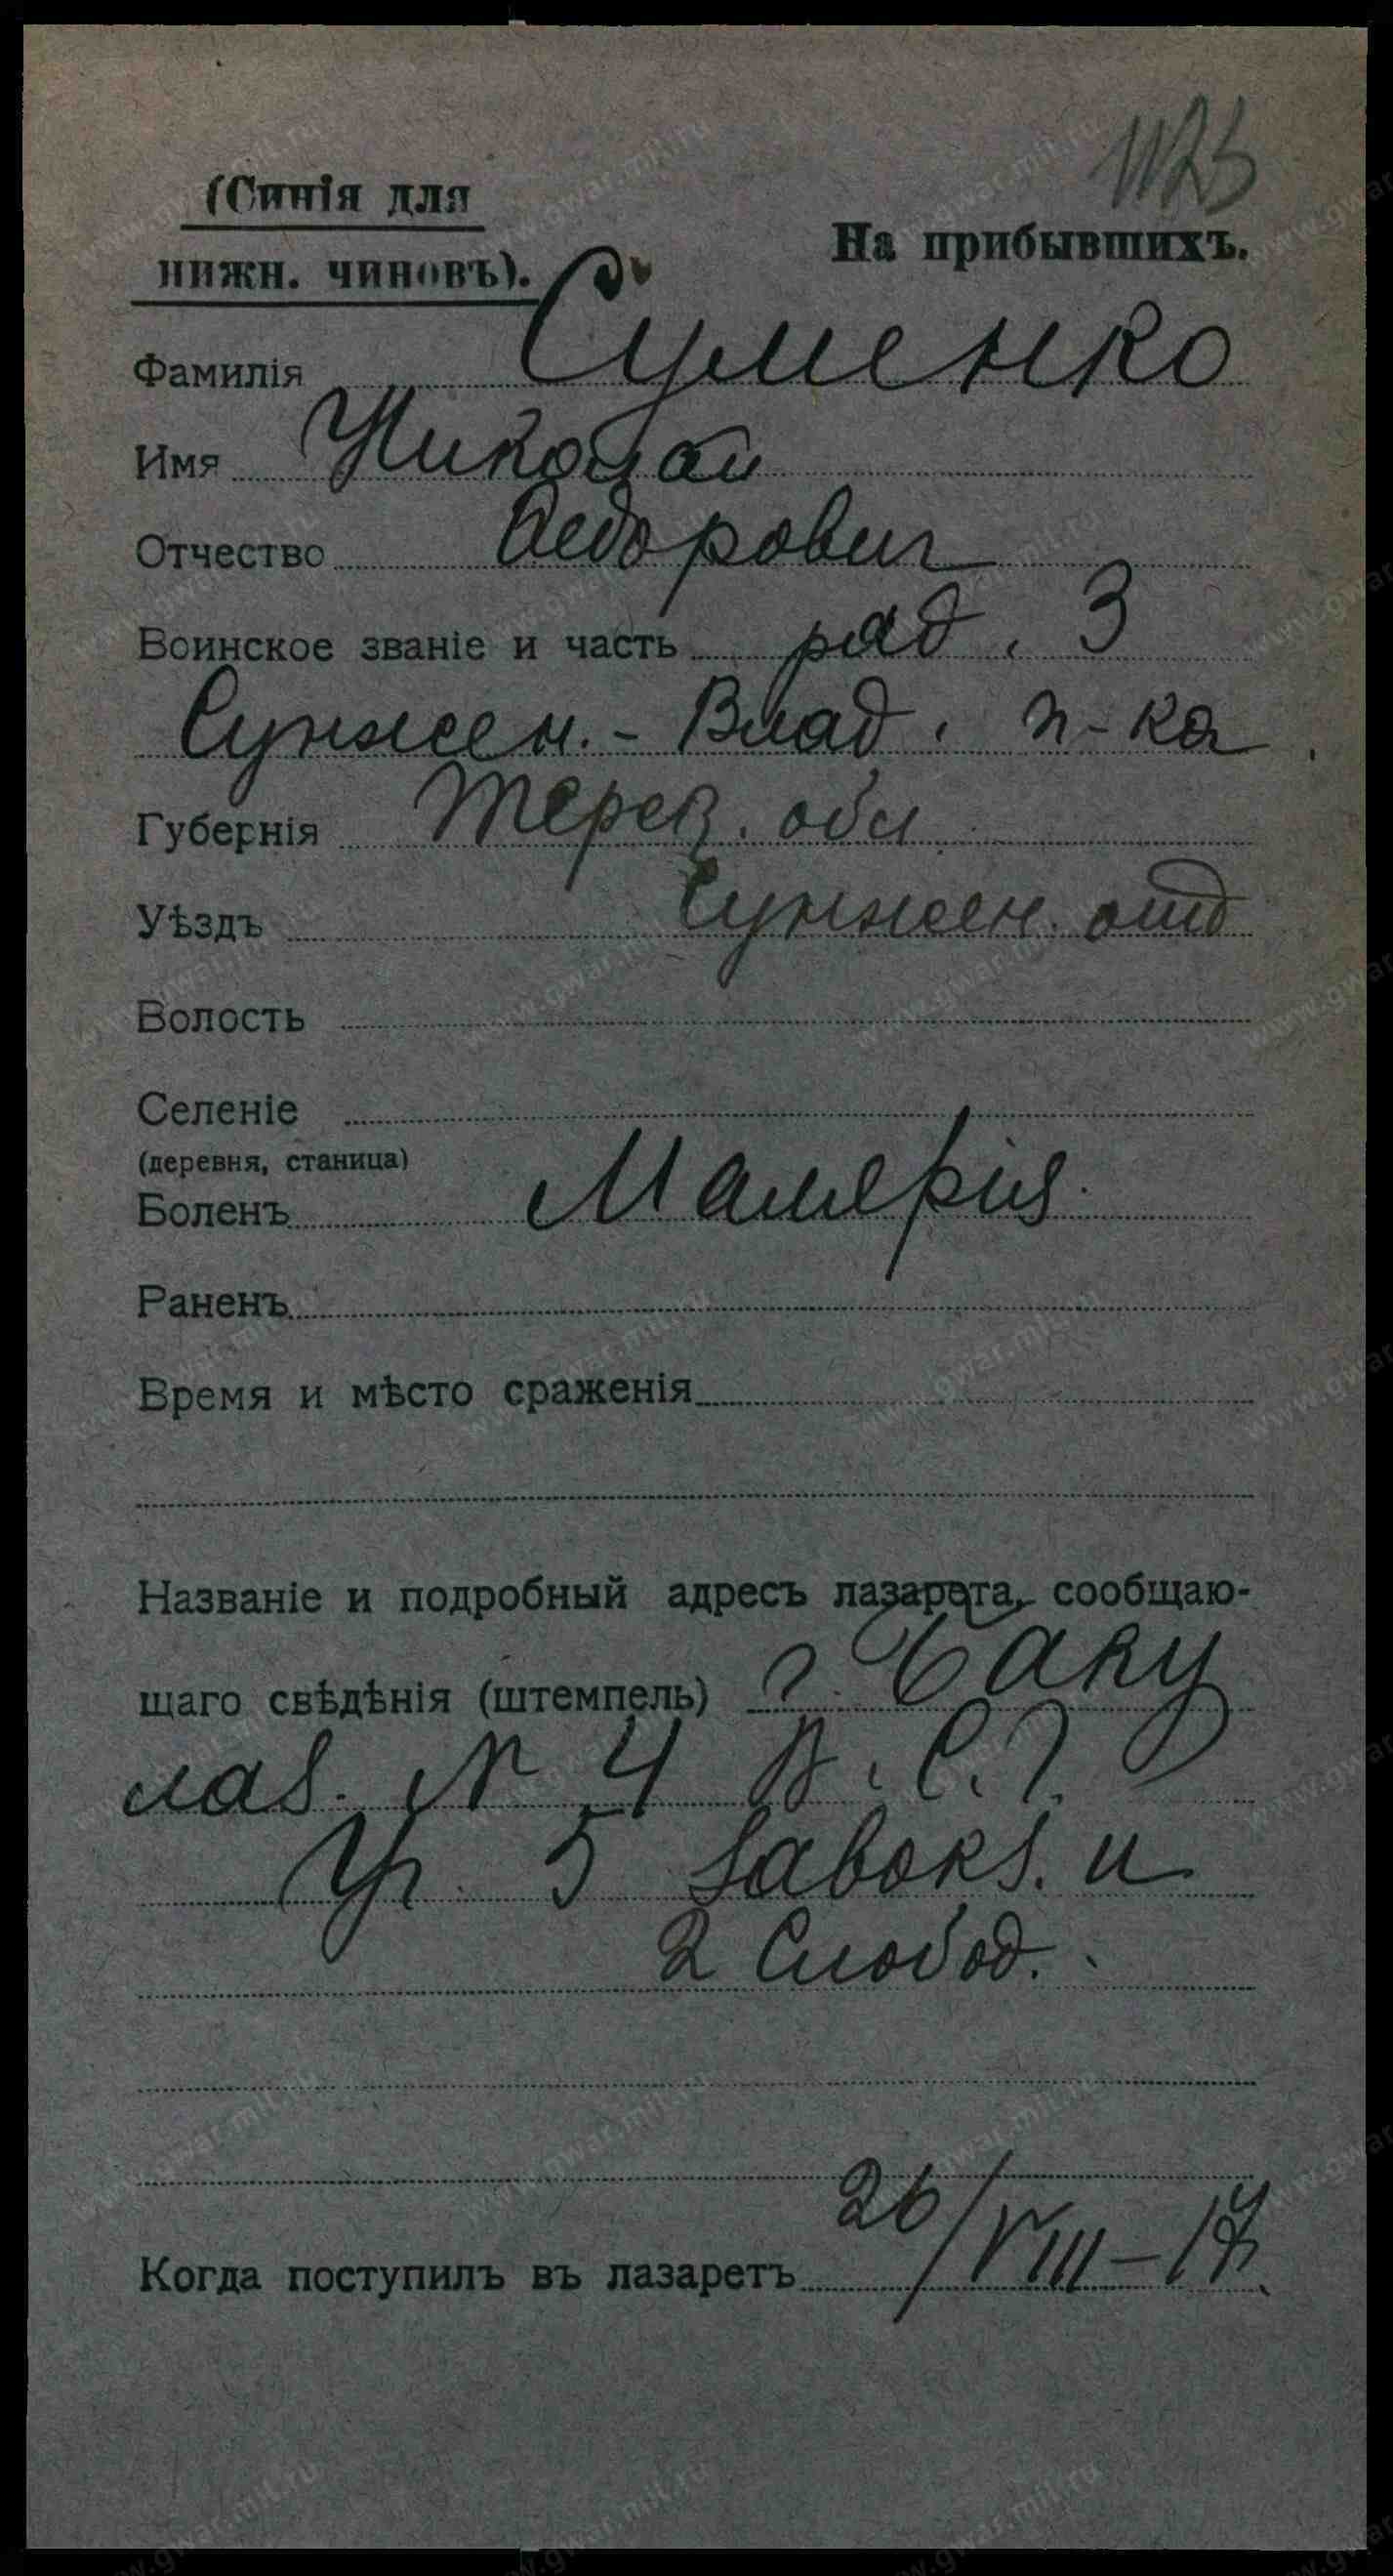 1123
(Синія для
нижн. чиновъ).
На прибывшихъ.
Фамилія Суменко
Имя Николай
Отчество Ѳедорович
Воинское званіе и часть ряд. 3
Сунжен.-Влад. п-ка
Губернія Терск. обл
Уѣздъ Сунжен. отд
Волость
Селеніе
(деревня, станица)
Боленъ Малярія.
Раненъ
Время и мѣсто сраженія
Названіе и подробный адресъ лазарета, сообщаю-
щаго свѣдѣнія (штемпель) г. Баку
лаз. № 4 В. С. Г.
Уг. 5 Завокз. и
2 Слобод.
Когда поступилъ въ лазаретъ 26/VIII-17